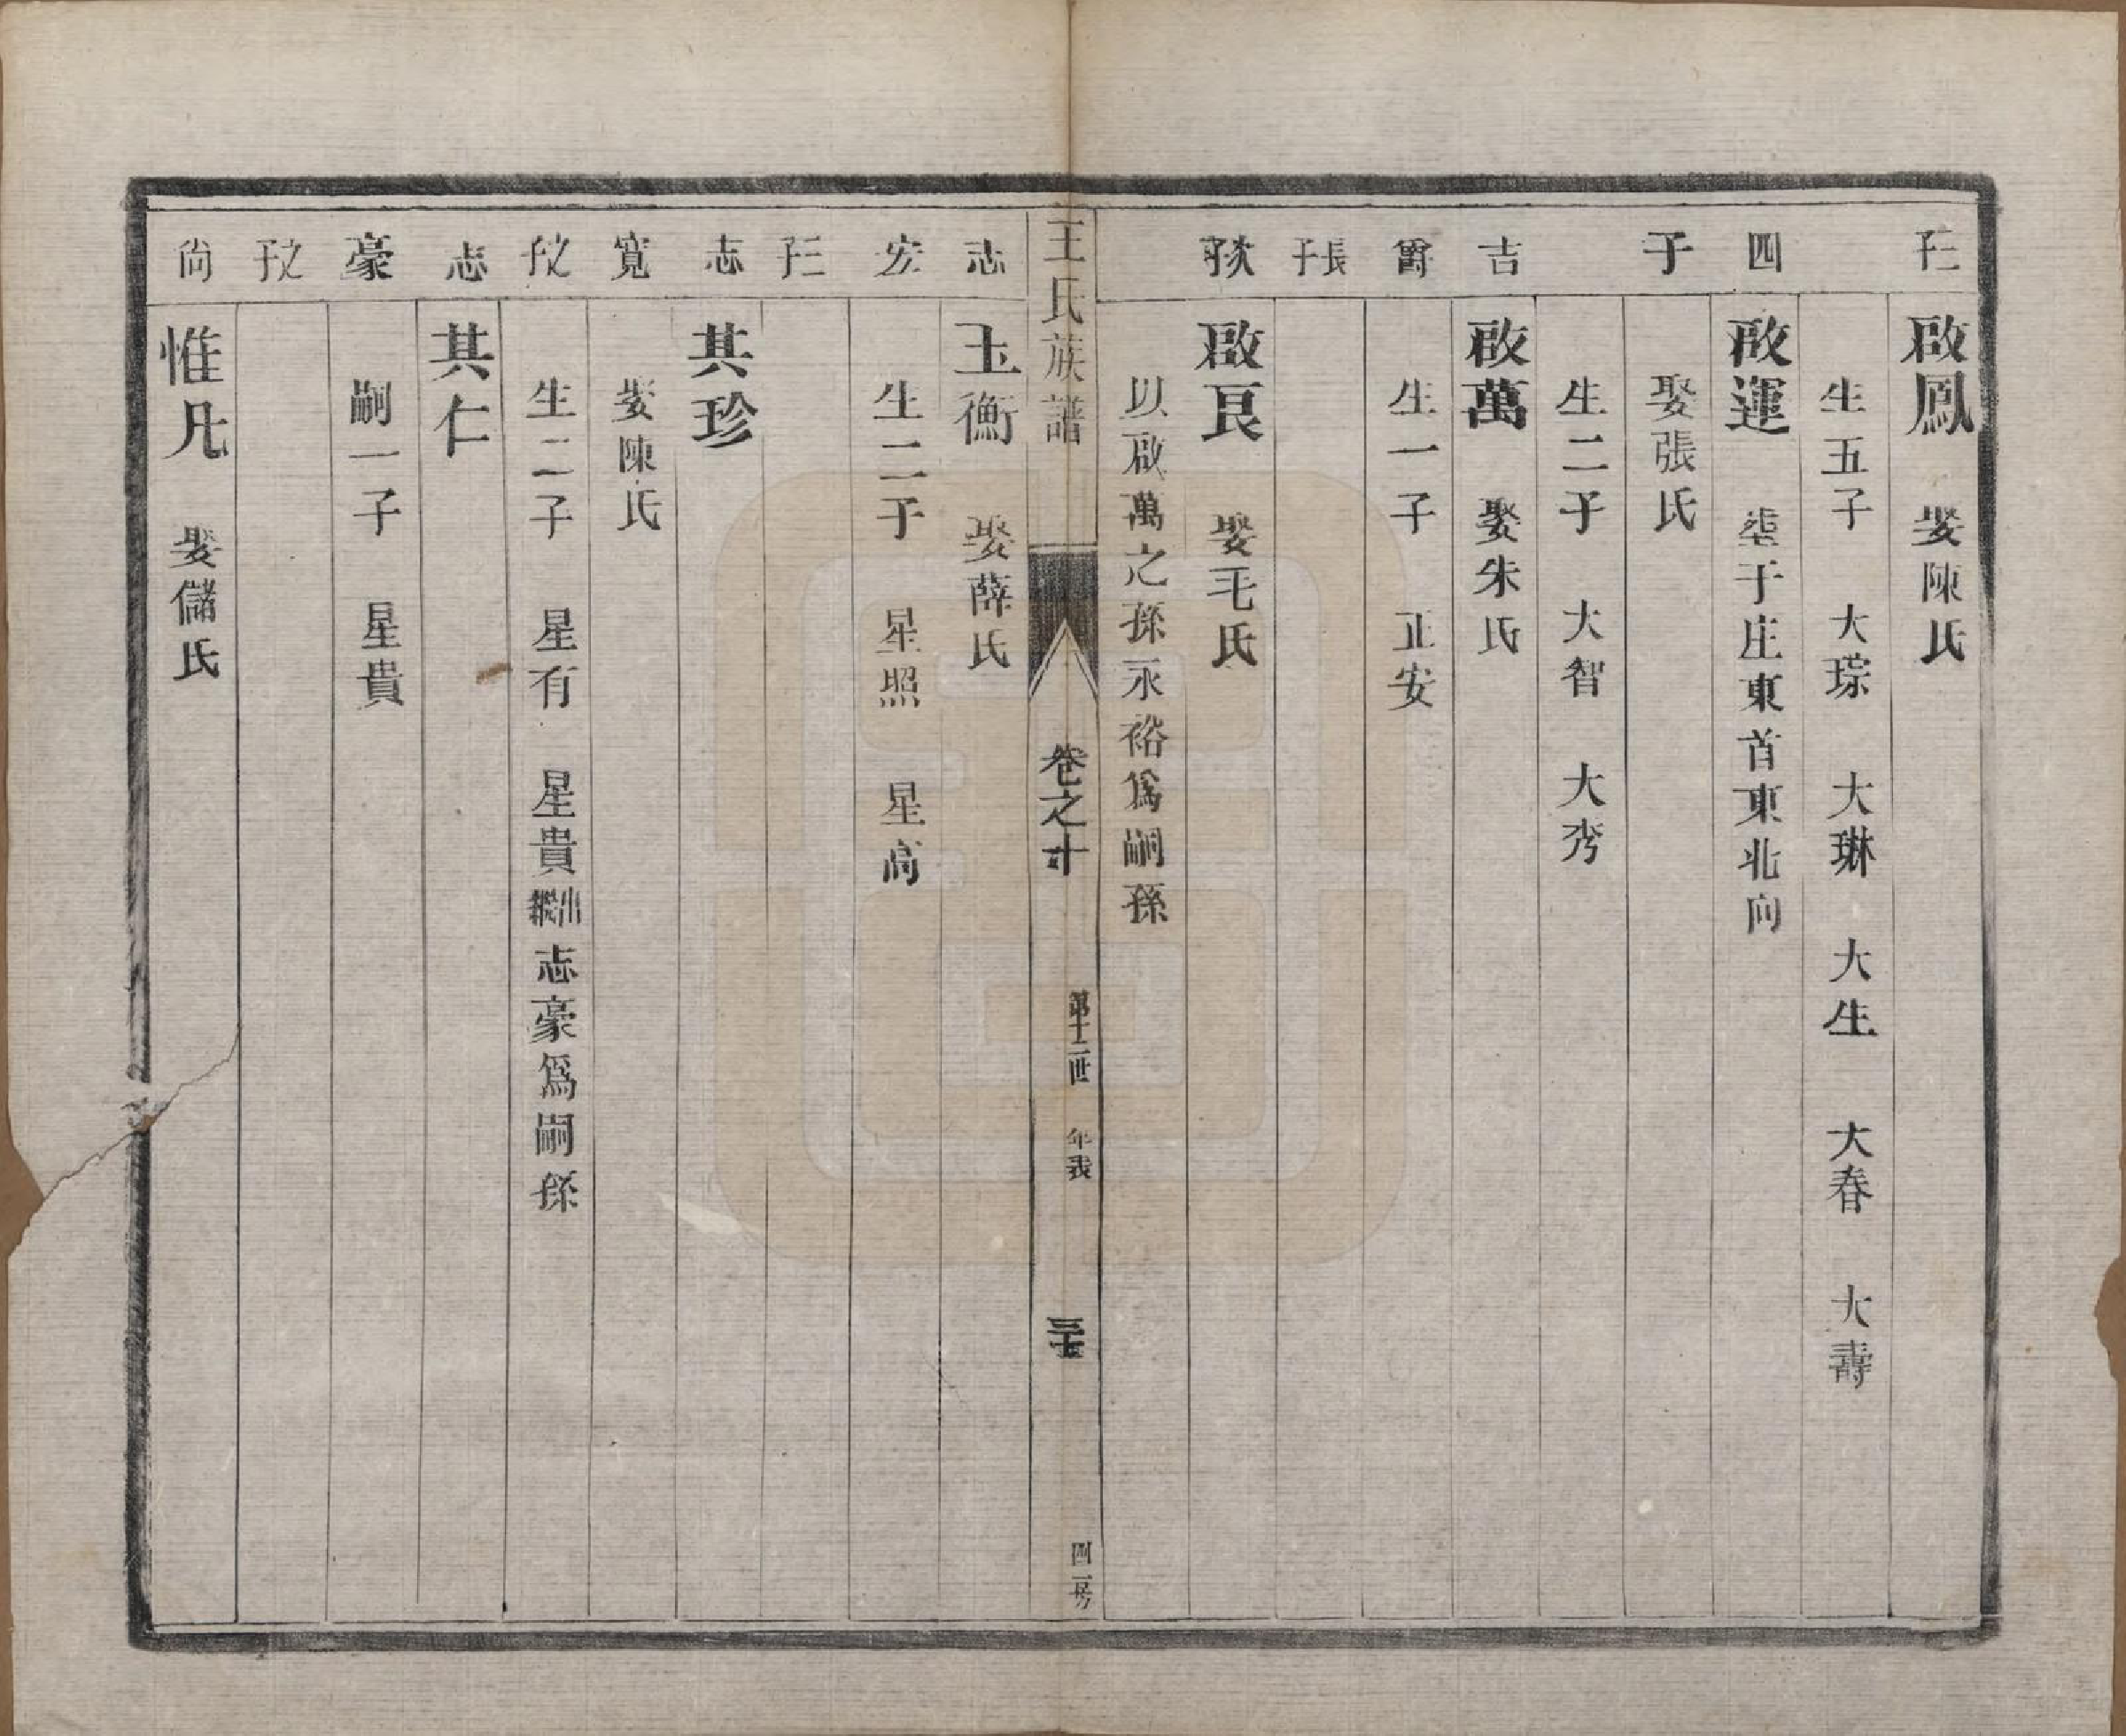 三子
啟鳳 娶陳氏
生五子 大琮 大琳 大生 大春 大壽
四
啟運 塟于庄東首東北向
子
娶張氏
生二子 大智 大秀
吉
啟萬 娶朱氏
爵
生一子 正安
長子
次子
啟良 娶毛氏
以啟萬之孫永裕為嗣孫
王氏族譜 卷之十 第十二世 年表 三十七 四房
志
玉衡 娶薛氏
宏
生二子 星照 星高
三子
志
其珍
寬
娶陳氏
次子
生二子 星有 星貴出繼志豪為嗣孫
志
其仁
豪
嗣一子 星貴
次子
尚
惟凡 娶儲氏